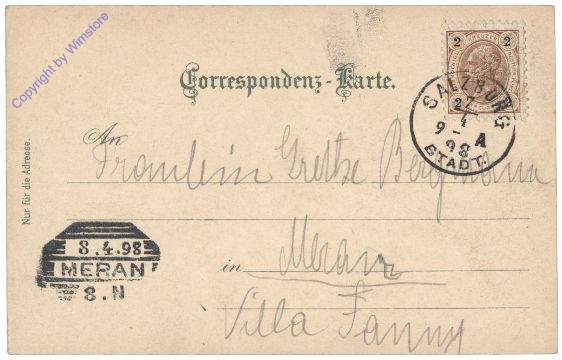 Copyright by Wimstore
2 KREUZER 2
Correspondenz-Karte.
SALZBURG
7
2 4
9 - A
98
STADT
An
Fräulein Grethe Bergmann
Nur für die Adresse.
8.4.98
MERAN
8.N
in Meran
Villa Fanny